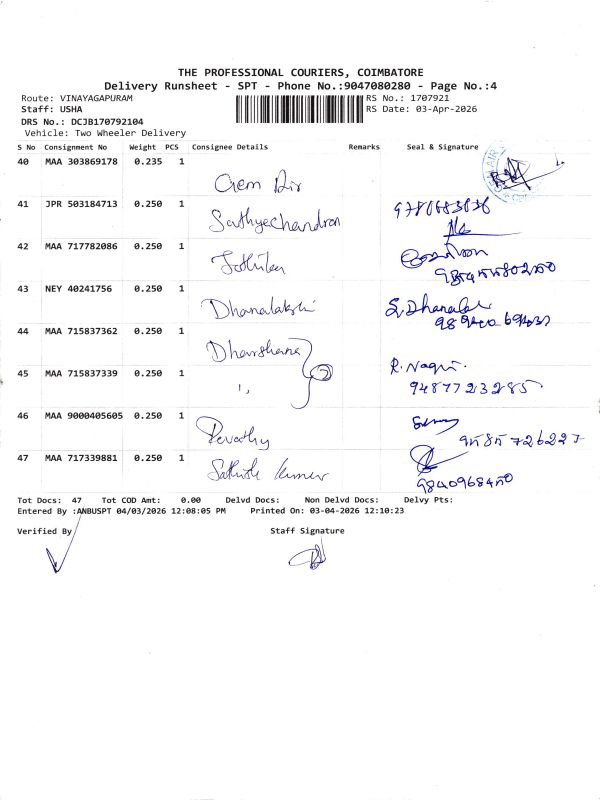 THE PROFESSIONAL COURIERS, COIMBATORE
Delivery Runsheet - SPT - Phone No.:9047080280 - Page No.:4
Route: VINAYAGAPURAM
RS No.: 1707921
Staff: USHA
RS Date: 03-Apr-2026
DRS No.: DCJB170792104
Vehicle: Two Wheeler Delivery
S No Consignment No Weight PCS Consignee Details Remarks Seal & Signature
40 MAA 303869178 0.235 1
Gem Air
41 JPR 503184713 0.250 1
Sathyechandran
42 MAA 717782086 0.250 1
43 NEY 40241756 0.250 1
Dhanalakshi
S. Dhanalax
44 MAA 715837362 0.250 1
Dharshana
45 MAA 715837339 0.250 1
R. Nagri
9487723285
46 MAA 9000405605 0.250 1
Revathy
9585726227
47 MAA 717339881 0.250 1
Sathish Kumar
9840968450
Tot Docs: 47 Tot COD Amt: 0.00 Delvd Docs: Non Delvd Docs: Delvy Pts:
Entered By :ANBUSPT 04/03/2026 12:08:05 PM Printed On: 03-04-2026 12:10:23
Verified By Staff Signature